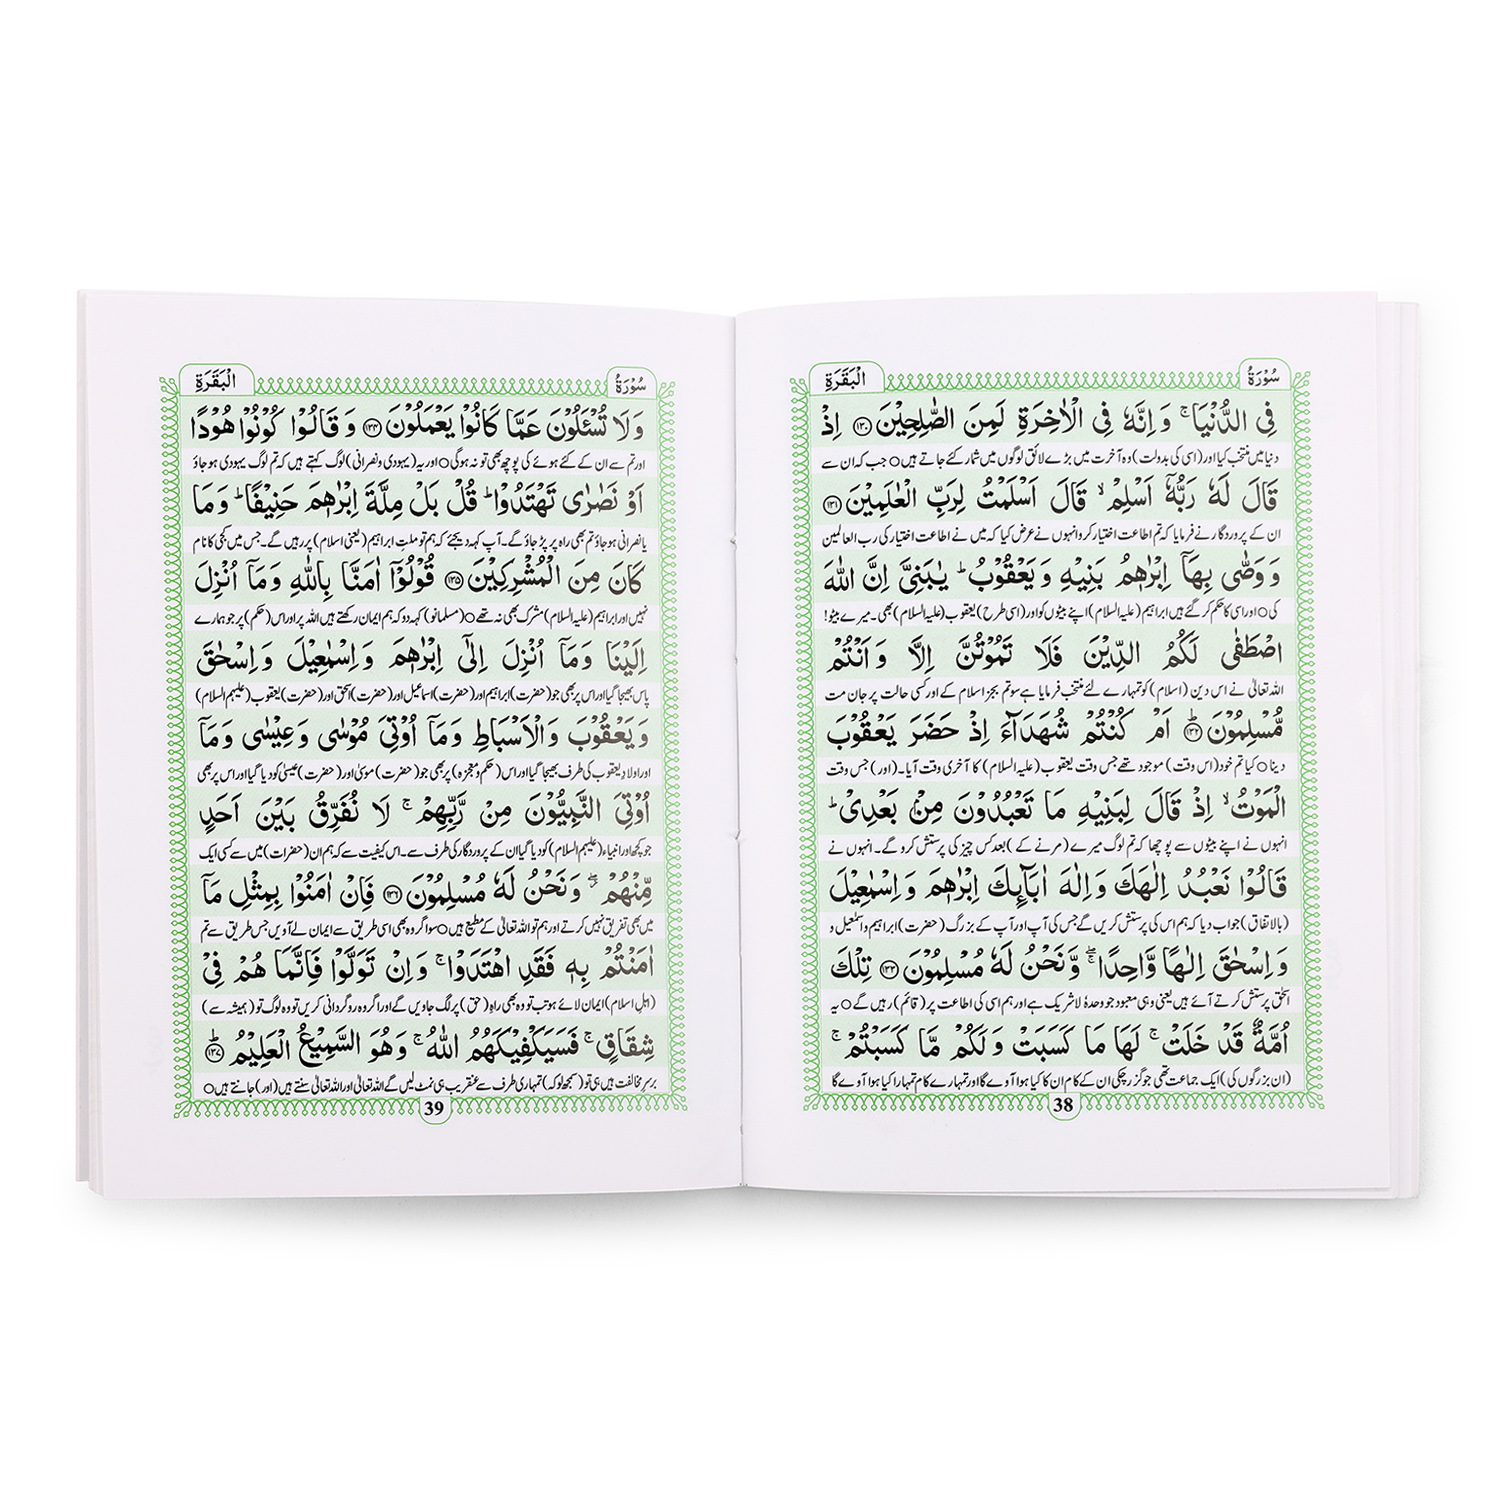 سُوْرَةُ
الْبَقَرَةِ
فِی الدُّنْیَا ۚ وَ اِنَّهٗ فِی الْاٰخِرَةِ لَمِنَ الصّٰلِحِیْنَ ﴿۱۳۰﴾ اِذْ
دنیا میں منتخب کیا اور (اسی کی بدولت) وہ آخرت میں بڑے لائق لوگوں میں شمار کئے جاتے ہیں ○ جب کہ ان سے
قَالَ لَهٗ رَبُّهٗۤ اَسْلِمْ ۙ قَالَ اَسْلَمْتُ لِرَبِّ الْعٰلَمِیْنَ ﴿۱۳۱﴾
ان کے پروردگار نے فرمایا کہ تم اطاعت اختیار کرو انہوں نے عرض کیا کہ میں نے اطاعت اختیار کی رب العالمین
وَ وَصّٰی بِهَاۤ اِبْرٰهٖمُ بَنِیْهِ وَ یَعْقُوْبُ ؕ یٰبَنِیَّ اِنَّ اللّٰهَ
کی ○ اور اسی کا حکم کر گئے ہیں ابراہیم (علیہ السلام) اپنے بیٹوں کو اور (اسی طرح) یعقوب (علیہ السلام) بھی۔ میرے بیٹو!
اصْطَفٰی لَكُمُ الدِّیْنَ فَلَا تَمُوْتُنَّ اِلَّا وَ اَنْتُمْ
اللہ تعالیٰ نے اس دین (اسلام) کو تمہارے لئے منتخب فرمایا ہے سو تم بجز اسلام کے اور کسی حالت پر جان مت
مُّسْلِمُوْنَ ﴿۱۳۲﴾ اَمْ كُنْتُمْ شُهَدَآءَ اِذْ حَضَرَ یَعْقُوْبَ
دینا ○ کیا تم خود (اس وقت) موجود تھے جس وقت یعقوب (علیہ السلام) کا آخری وقت آیا۔ (اور) جس وقت
الْمَوْتُ ۙ اِذْ قَالَ لِبَنِیْهِ مَا تَعْبُدُوْنَ مِنْۢ بَعْدِیْ ؕ
انہوں نے اپنے بیٹوں سے پوچھا کہ تم لوگ میرے (مرنے کے) بعد کس چیز کی پرستش کرو گے۔ انہوں نے
قَالُوْا نَعْبُدُ اِلٰهَكَ وَ اِلٰهَ اٰبَآىِٕكَ اِبْرٰهٖمَ وَ اِسْمٰعِیْلَ
(بالاتفاق) جواب دیا کہ ہم اس کی پرستش کریں گے جس کی آپ اور آپ کے بزرگ (حضرت) ابراہیم و اسمٰعیل و
وَ اِسْحٰقَ اِلٰهًا وَّاحِدًا ۖۚ وَّ نَحْنُ لَهٗ مُسْلِمُوْنَ ﴿۱۳۳﴾ تِلْكَ
اسحٰق پرستش کرتے آئے ہیں یعنی وہی معبود جو وحدہٗ لاشریک ہے اور ہم اسی کی اطاعت پر (قائم) رہیں گے ○ یہ
اُمَّةٌ قَدْ خَلَتْ ۚ لَهَا مَا كَسَبَتْ وَ لَكُمْ مَّا كَسَبْتُمْ ۚ
(ان بزرگوں کی) ایک جماعت تھی جو گزر چکی ان کے کام ان کا کیا ہوا آوے گا اور تمہارے کام تمہارا کیا ہوا آوے گا
38
سُوْرَةُ
الْبَقَرَةِ
وَ لَا تُسْـَٔلُوْنَ عَمَّا كَانُوْا یَعْمَلُوْنَ ﴿۱۳۴﴾ وَ قَالُوْا كُوْنُوْا هُوْدًا
اور تم سے ان کے کئے ہوئے کی پوچھ بھی تو نہ ہوگی ○ اور یہ (یہودی و نصرانی) لوگ کہتے ہیں کہ تم لوگ یہودی ہو جاؤ
اَوْ نَصٰرٰی تَهْتَدُوْا ؕ قُلْ بَلْ مِلَّةَ اِبْرٰهٖمَ حَنِیْفًا ؕ وَ مَا
یا نصرانی ہو جاؤ تم بھی راہ پر پڑ جاؤ گے۔ آپ کہہ دیجئے کہ ہم تو ملتِ ابراہیم (یعنی اسلام) پر رہیں گے۔ جس میں کجی کا نام
كَانَ مِنَ الْمُشْرِكِیْنَ ﴿۱۳۵﴾ قُوْلُوْۤا اٰمَنَّا بِاللّٰهِ وَ مَاۤ اُنْزِلَ
نہیں اور ابراہیم (علیہ السلام) مشرک بھی نہ تھے ○ (مسلمانو) کہہ دو کہ ہم ایمان رکھتے ہیں اللہ پر اور اس (حکم) پر جو ہمارے
اِلَیْنَا وَ مَاۤ اُنْزِلَ اِلٰۤی اِبْرٰهٖمَ وَ اِسْمٰعِیْلَ وَ اِسْحٰقَ
پاس بھیجا گیا اور اس پر بھی جو (حضرت) ابراہیم اور (حضرت) اسماعیل اور (حضرت) اسحٰق اور (حضرت) یعقوب (علیہم السلام)
وَ یَعْقُوْبَ وَ الْاَسْبَاطِ وَ مَاۤ اُوْتِیَ مُوْسٰی وَ عِیْسٰی وَ مَاۤ
اور اولادِ یعقوب کی طرف بھیجا گیا اور اس (حکم و معجزہ) پر بھی جو (حضرت) موسیٰ اور (حضرت) عیسیٰ کو دیا گیا اور اس پر بھی
اُوْتِیَ النَّبِیُّوْنَ مِنْ رَّبِّهِمْ ۚ لَا نُفَرِّقُ بَیْنَ اَحَدٍ
جو کچھ اور انبیاء (علیہم السلام) کو دیا گیا ان کے پروردگار کی طرف سے۔ اس کیفیت سے کہ ہم ان (حضرات) میں سے کسی ایک
مِّنْهُمْ ۖؗ وَ نَحْنُ لَهٗ مُسْلِمُوْنَ ﴿۱۳۶﴾ فَاِنْ اٰمَنُوْا بِمِثْلِ مَاۤ
میں بھی تفریق نہیں کرتے اور ہم تو اللہ تعالیٰ کے مطیع ہیں ○ سو اگر وہ بھی اسی طریق سے ایمان لے آویں جس طریق سے تم
اٰمَنْتُمْ بِهٖ فَقَدِ اهْتَدَوْا ۚ وَ اِنْ تَوَلَّوْا فَاِنَّمَا هُمْ فِیْ
(اہلِ اسلام) ایمان لائے ہو تب تو وہ بھی راہِ (حق) پر لگ جاویں گے اور اگر وہ روگردانی کریں تو وہ لوگ تو (ہمیشہ سے)
شِقَاقٍ ۚ فَسَیَكْفِیْكَهُمُ اللّٰهُ ۚ وَ هُوَ السَّمِیْعُ الْعَلِیْمُ ﴿۱۳۷﴾ؕ
برسرِ مخالفت ہیں ہی تو (سمجھ لو کہ) تمہاری طرف سے عنقریب ہی نمٹ لیں گے اللہ تعالیٰ اور اللہ تعالیٰ سنتے ہیں (اور) جانتے ہیں ○
39